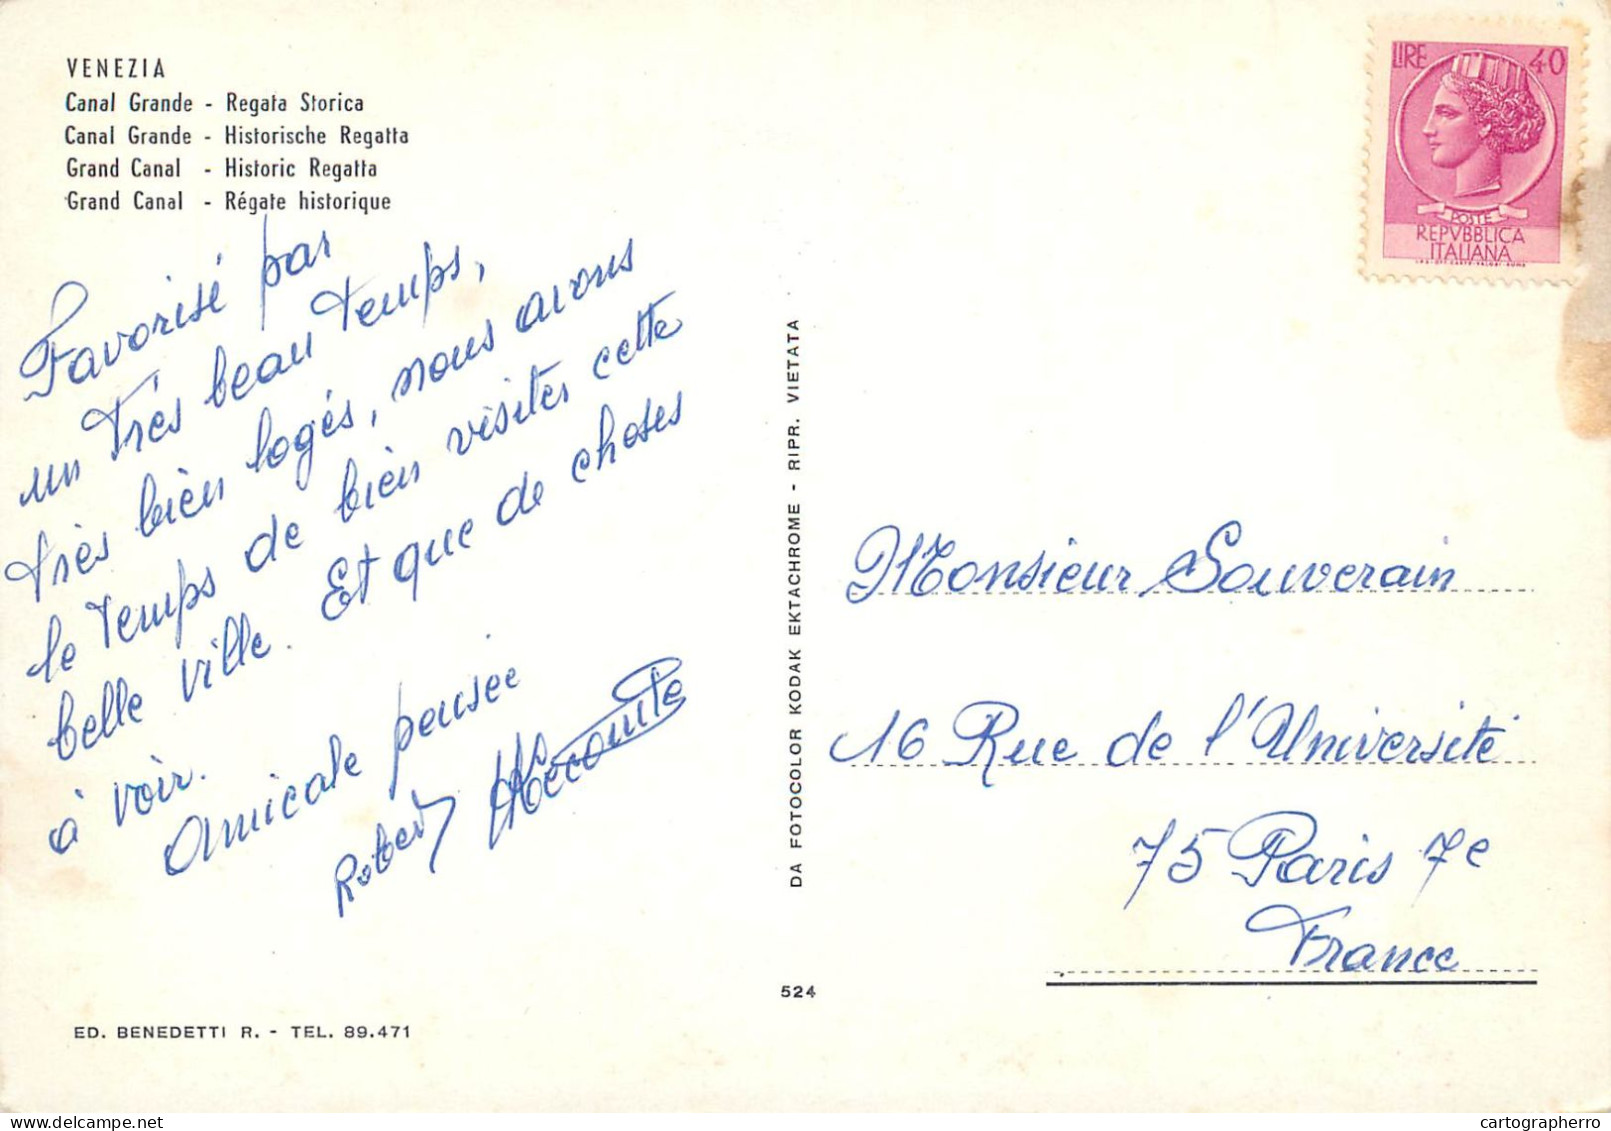 VENEZIA
Canal Grande - Regata Storica
Canal Grande - Historische Regatta
Grand Canal - Historic Regatta
Grand Canal - Régate historique
Favorisé par
un très beau temps,
très bien logés, nous avons
le temps de bien visiter cette
belle ville. Et que de choses
à voir.
Amicale pensée
Robert Lecomte
ED. BENEDETTI R. - TEL. 89.471
DA FOTOCOLOR KODAK EKTACHROME - RIPR. VIETATA
524
LIRE 40
POSTE
REPVBBLICA
ITALIANA
Monsieur Souverain
16 Rue de l'Université
75 Paris 7e
France
cartographerro